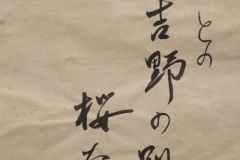 との
吉野の
桜